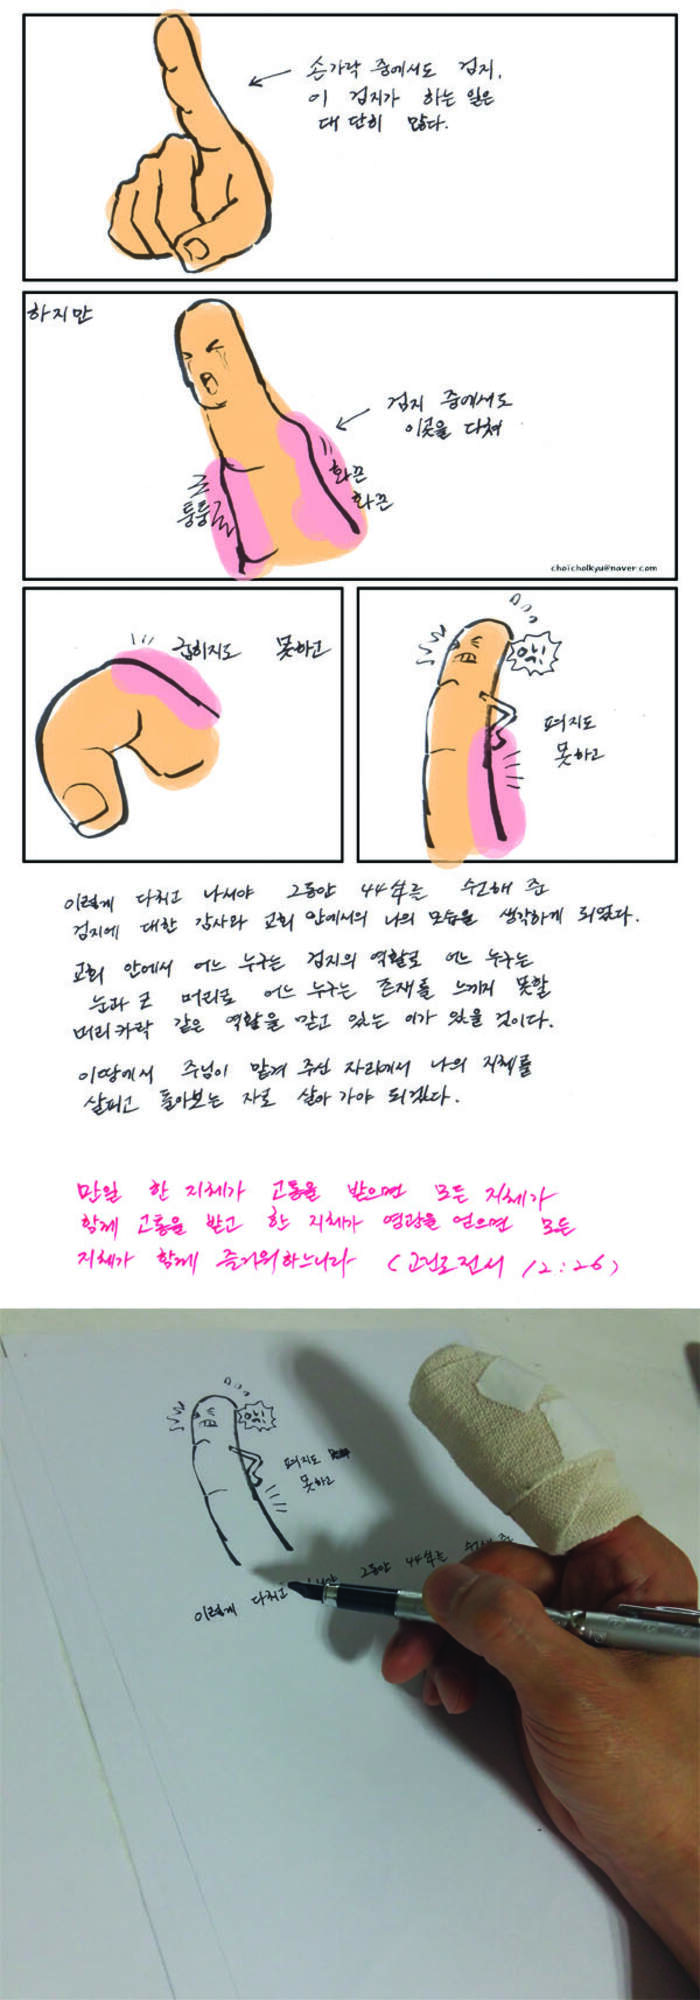 손가락 중에서도 검지.
이 검지가 하는 일은
대단히 많다.
하지만
검지 중에서도
이곳을 다쳐
퉁퉁
화끈
화끈
choicholkyu@naver.com
굽히지도 못하고
악!
펴지도
못하고
이렇게 다치고 나서야 그동안 44年을 수고해 준
검지에 대한 감사와 교회 안에서의 나의 모습을 생각하게 되었다.
교회 안에서 어느 누구는 검지의 역할로 어느 누구는
눈과 코 머리로 어느 누구는 존재를 느끼지 못할
머리카락 같은 역할을 맡고 있는 이가 있을 것이다.
이땅에서 주님이 맡겨 주신 자리에서 나의 지체를
살피고 돌아보는 자로 살아가야 되겠다.
만일 한 지체가 고통을 받으면 모든 지체가
함께 고통을 받고 한 지체가 영광을 얻으면 모든
지체가 함께 즐거워하느니라 (고린도전서 12:26)
악!
펴지도
못하고
이렇게 다치고 그동안 44年을